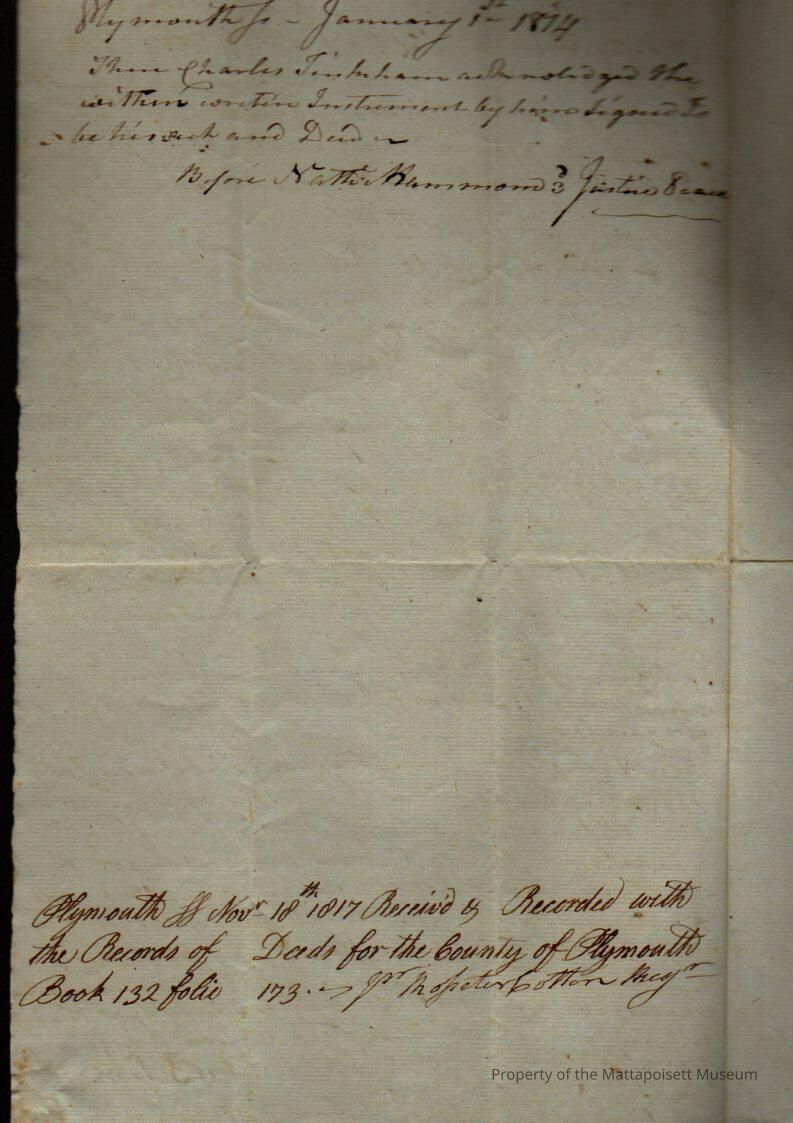 Plymouth ss - January 1st 1814
Then Charles Tinkham acknoledged the
within writin Instrument by him signed To
be his act and Deed
Before Nathl Hammond Justice Peace
Plymouth ss Novr 18th 1817 Receiv'd & Recorded with
the Records of Deeds for the County of Plymouth
Book 132 folio 173. pr Rosseter Cotton Regr
Property of the Mattapoisett Museum